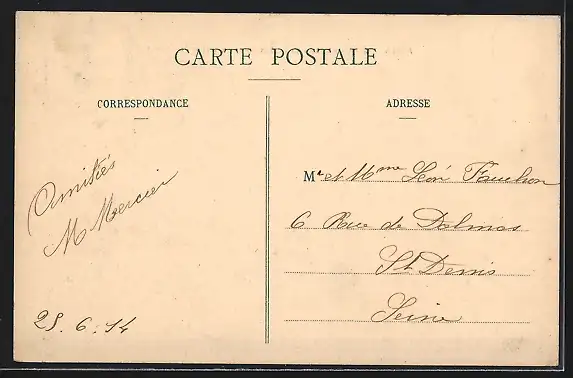 CARTE POSTALE
CORRESPONDANCE
ADRESSE
Amitiés
M Mercier
M. et Mme Léon Fauchon
6 Rue de Dalmas
St Denis
Seine
25.6.14